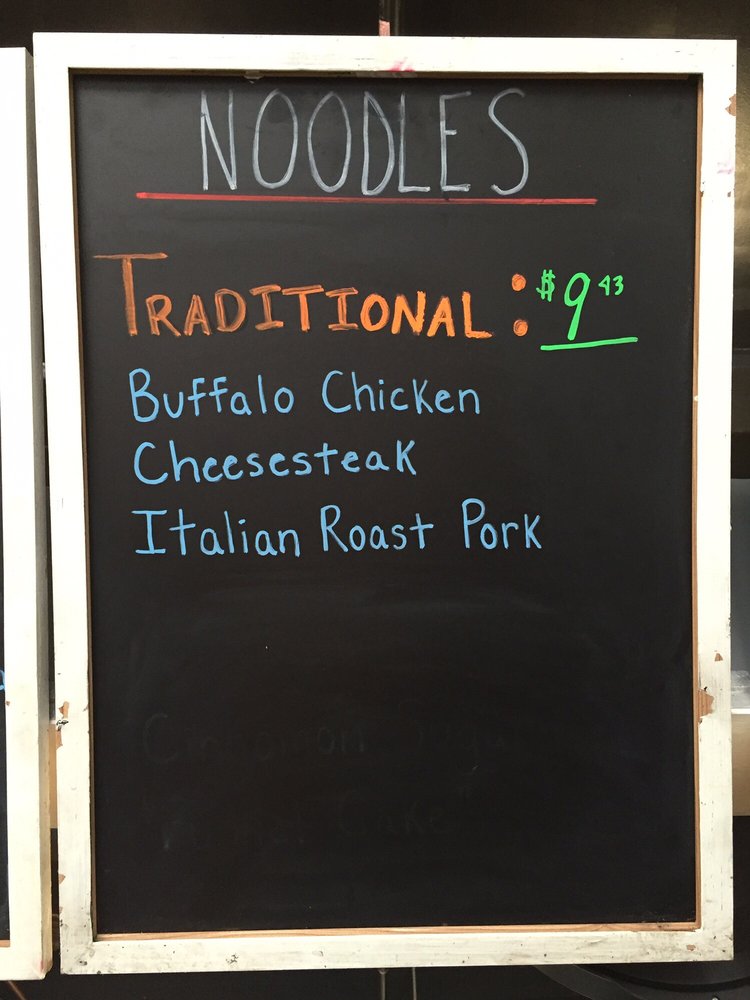 NOODLES
TRADITIONAL: $9 43
Buffalo Chicken
Cheesesteak
Italian Roast Pork
Cinnamon
Cake